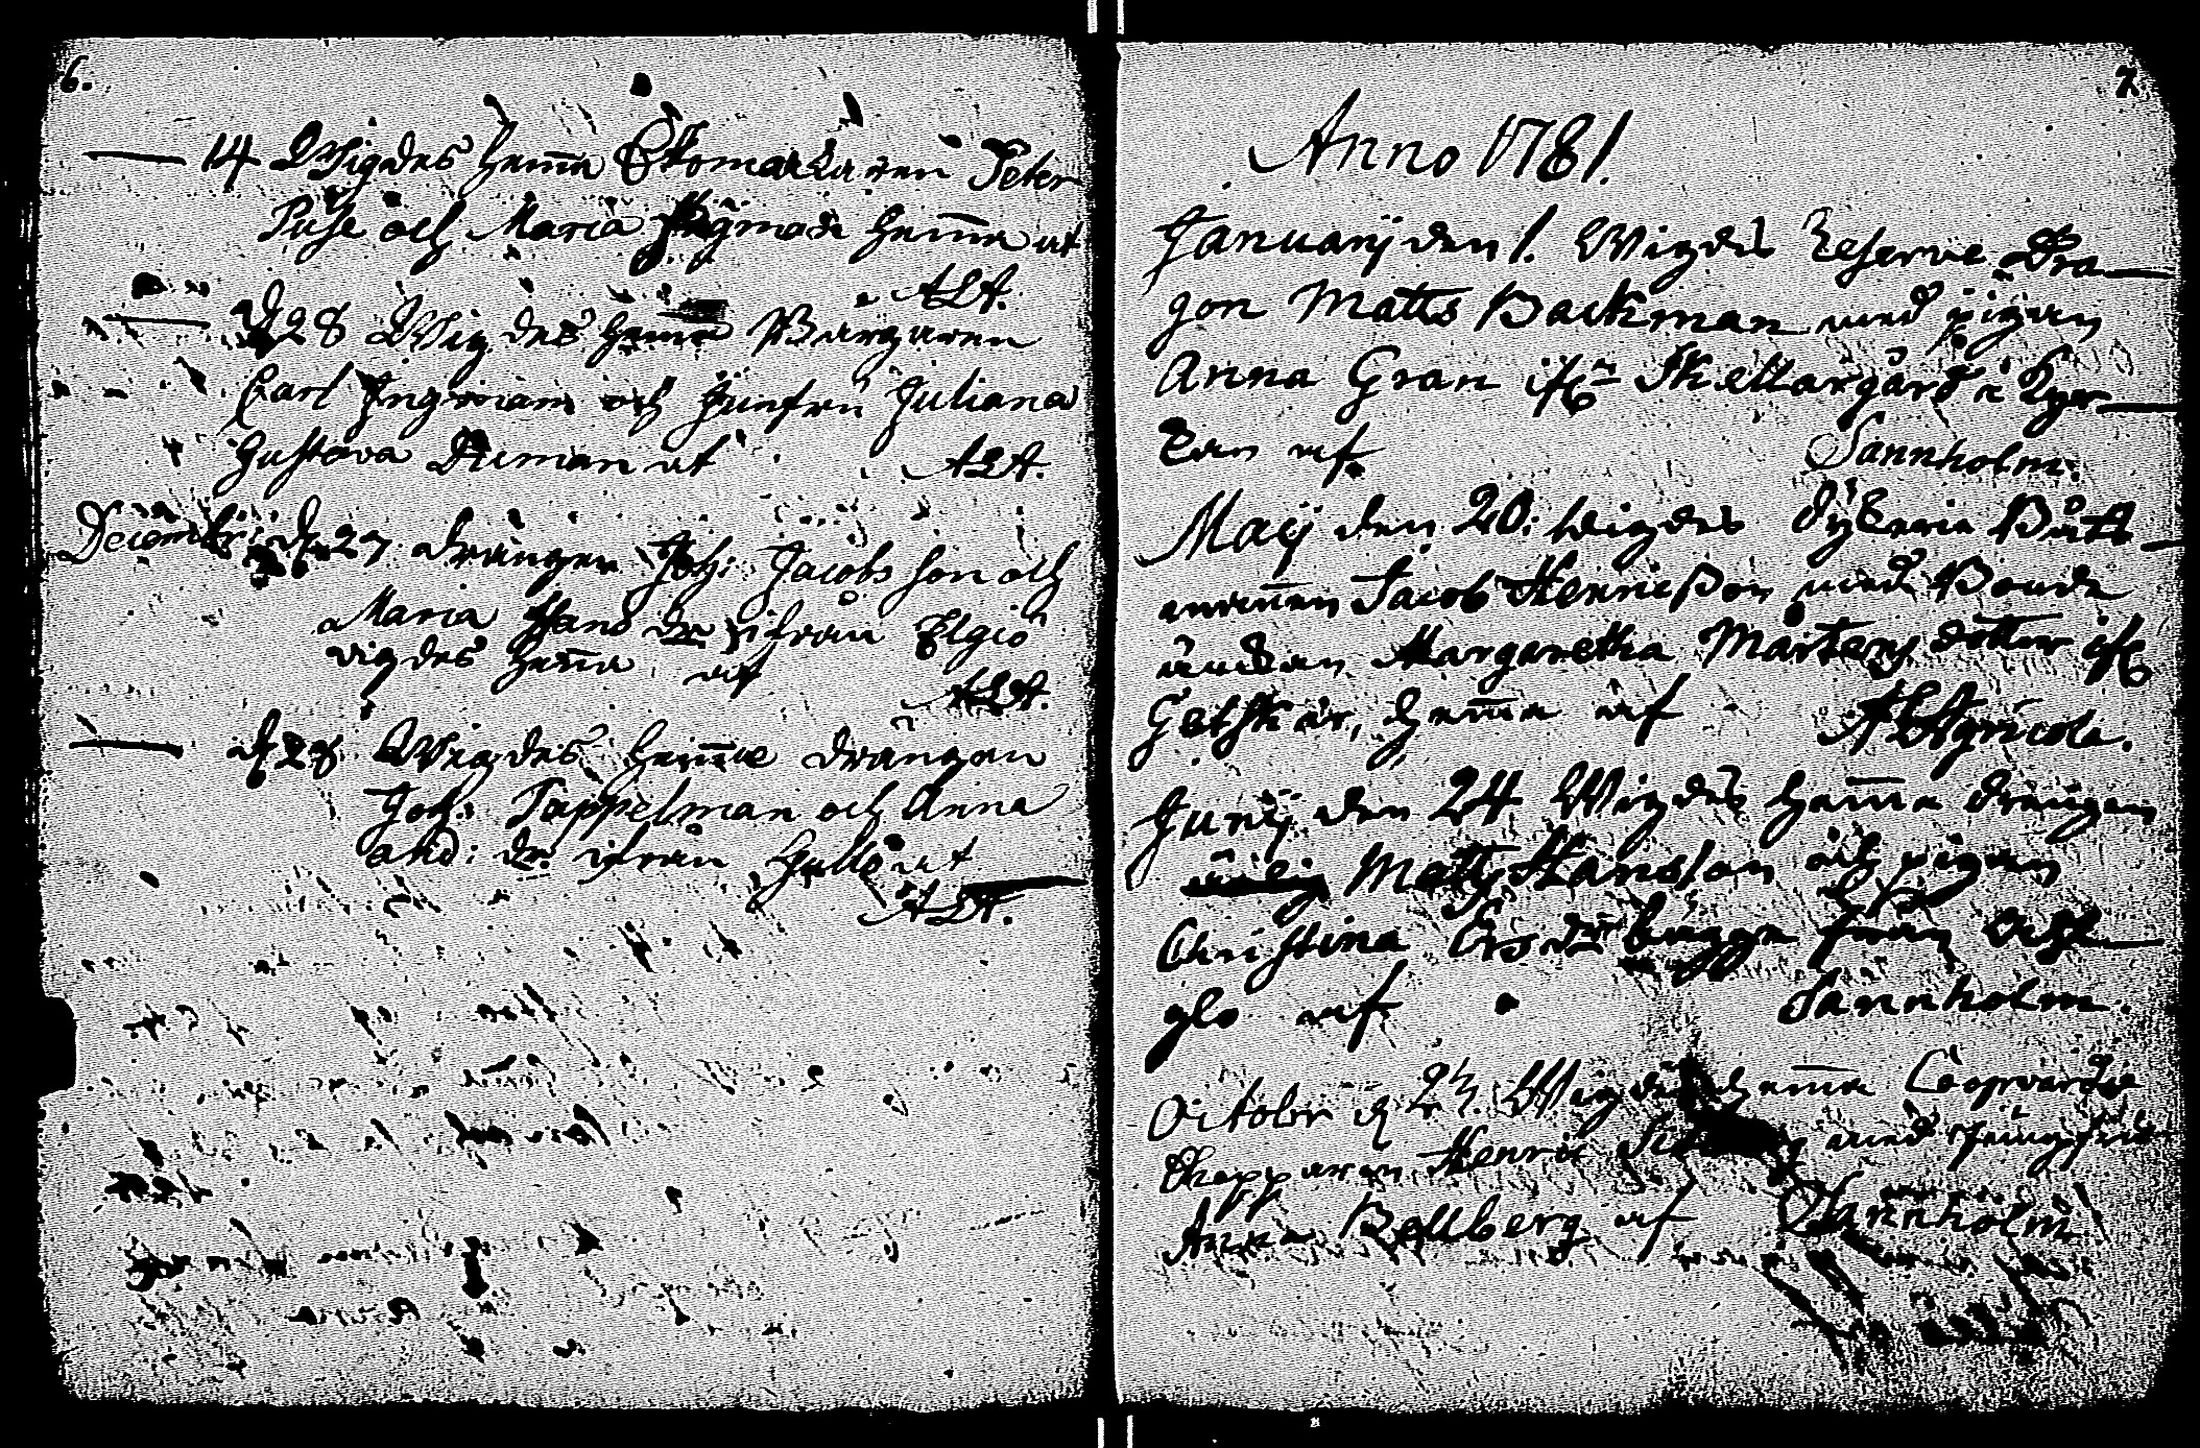 6.
14 Wigdes hem̄a Skomakaren Peter
Puse och Maria hem̄a af
ALA.
d 28 Wigdes hema Borgaren
Carl Ingman och Junfru Juliana
Gustava Duman af ALA.
Decembr: d. 27 drängen Joh: Jacobsson och
Maria Hans dr ifrån Elgiö
vigdes hem̄a af
ALA.
d 28 Wigdes hem̄a drängen
Joh: Tappelman och Anna
And: dr. ifrån Hallö af
ALA.
7
Anno 1781.
Januarij den 1. Wigdes Reserve Dra
gon Matts Backman med pigan
Anna Gran ifr Skellargård i Kyr
kan af Sannholm.
Maij den 20. Wigdes Båtz
Jacob Henricsson med Bonde
änckan Margaretha Mårtens dotter ifr
Getskär, hem̄a af A LAgricola.
Junij den 24 Wigdes hem̄a drängen
Matts Hansson och pigan
Christina Ers dr från
glo af Sannholm.
October d 23. Wigdes hem̄a Coopvardie
Skepparen Henric med Jungfru
Anna Bellberg af Sannholm